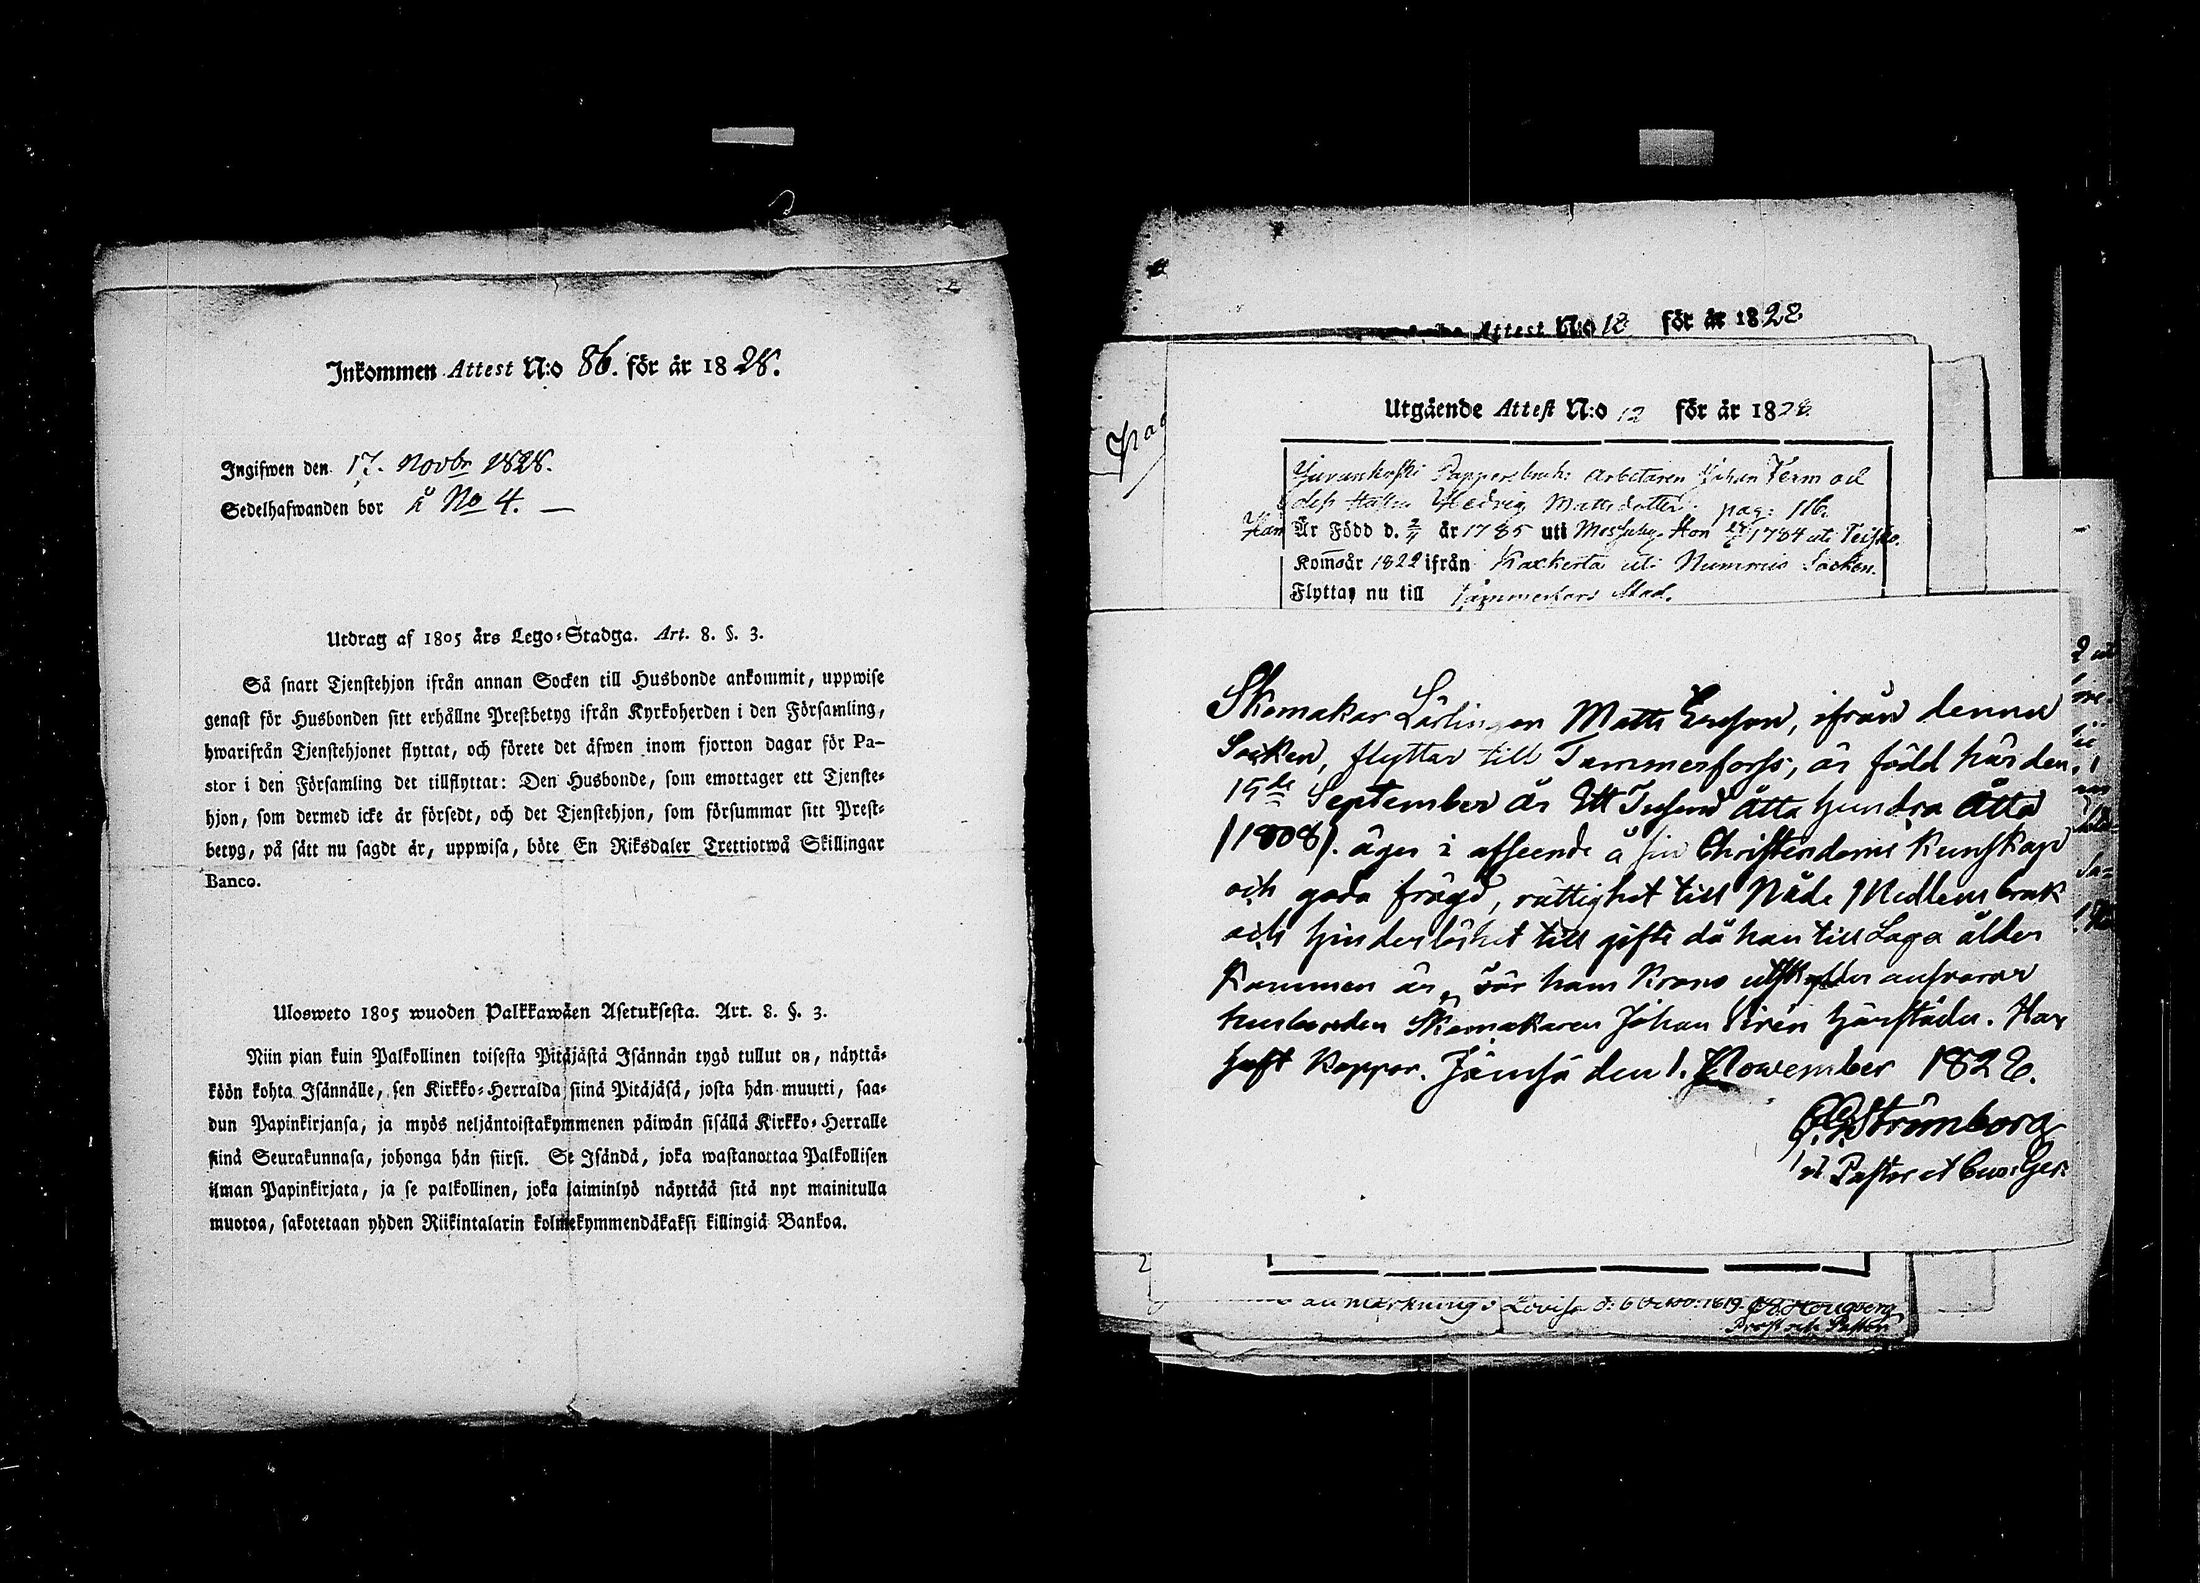 Inkommen Attest N:o 86. för år 1828.
Ingifwen den 17. Novbr 1828.
Sedelhafwanden bor å No 4. —
Utdrag af 1805 års Lego-Stadga. Art. 8. §. 3.
Så snart Tjenstehjon ifrån annan Socken till Husbonde ankommit, uppwise
genast för Husbonden sitt erhållne Prestbetyg ifrån Kyrkoherden i den Församling,
hwarifrån Tjenstehjonet flyttat, och förete det äfwen inom fjorton dagar för Pa-
stor i den Församling det tillflyttat: Den Husbonde, som emottager ett Tjenste-
hjon, som dermed icke är försedt, och det Tjenstehjon, som försummar sitt Prest-
betyg, på sätt nu sagdt är, uppwisa, böte En Riksdaler Trettiotwå Skillingar
Banco.
Ulosweto 1805 wuoden Palkkawäen Asetuksesta. Art. 8. §. 3.
Niin pian kuin Palkollinen toisesta Pitäjästä Isännän tygö tullut on, näyttä-
köön kohta Isännälle, sen Kirkko-Herralda siinä Pitäjäsä, josta hän muutti, saa-
dun Papinkirjansa, ja myös neljäntoistakymmenen päiwän sisällä Kirkko-Herralle
siinä Seurakunnasa, johonga hän siirsi. Se Isändä, joka wastanottaa Palkollisen
ilman Papinkirjata, ja se palkollinen, joka laiminlyö näyttää sitä nyt mainitulla
muotoa, sakotetaan yhden Riikintalarin kolmekymmendäkaksi killingiä Bankoa.
Attest N:o 18 för år 1828
Utgående Attest N:o 12 för år 1828
Juvankoski Pappersbruk: Arbetaren Johan Term och
dess Hustru Hedvig Mattsdotter. pag: 116.
Han Är Född d. 2/4 år 1785 uti Messuby. Hon 1784 uti Teisko.
Kom år 1822 ifrån Karkerta uti Nummis Socken.
Flyttar nu till Tammerfors Stad.
Skomakar Lärlingen Matts Ersson, ifrån denna
Socken, flyttar till Tammerforss, är född här den
19de September år Ett Tusend åtta hundra åtta
/1808/. äger i afseende å sin Christendoms Kunskap
och goda frägd, rättighet till Nåde Medlens bruk
och hinderlöshet till gifte då han till Laga ålder
kommen är, för hans Krono utskylder ansvarar
husbonden Skomakaren Johan Sirén härstädes. Har
haft Koppor. Jämsä den 1. November 1828.
Strömborg
vi. Pastor et
anmärkning: Lovisa d: 6 Octob: 1819.
Prost och Pastor